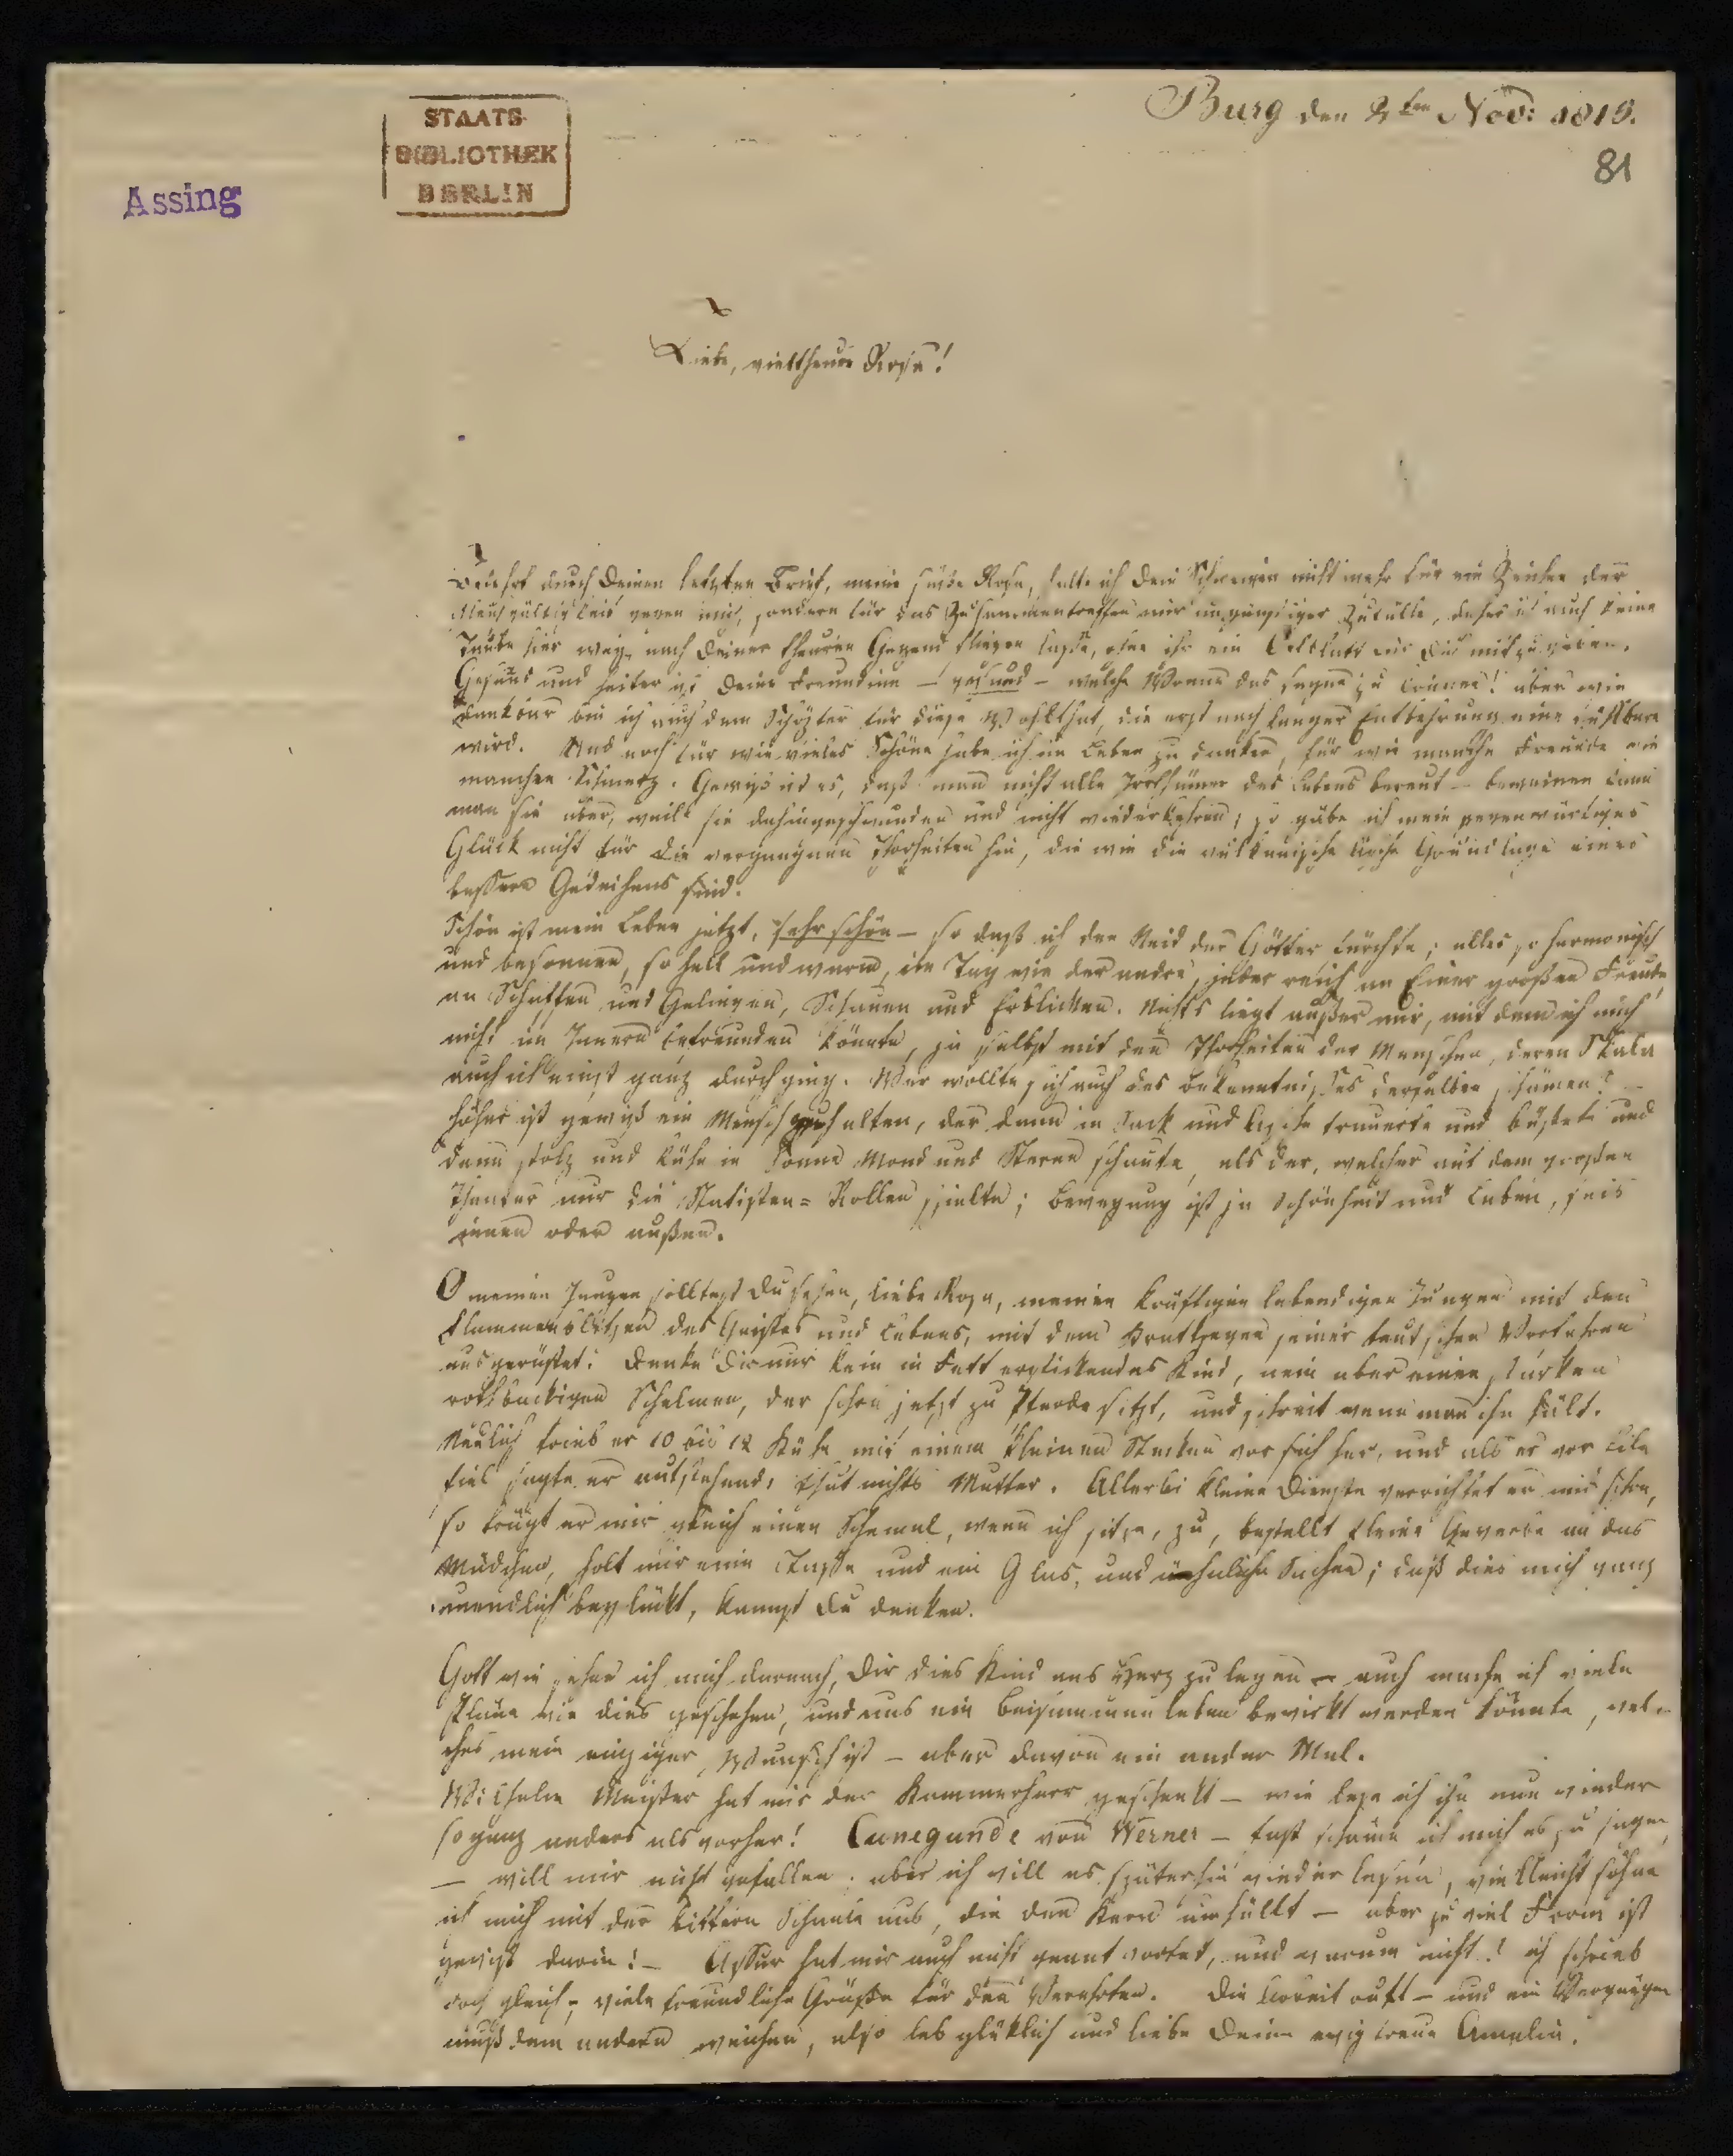 Burg den 2ten Nov: 1819.
81
STAATS-
BIBLIOTHEK
BERLIN
Assing
Liebe, vieltheure Rosa!
Belehrt durch Deinen letzten Brief, meine süße Rosa, halte ich Dein Schweigen nicht mehr für ein Zeichen der
Gleichgültigkeit gegen mich, sondern für das Zusammentreffen mir ungünstiger Zufälle, daher ich auch keine
Taube hier weg, nach Deiner theuren Gegend fliegen lasse, ohne ihr ein Oelblatt für Dich mitzugeben.
Gesund und heiter ist Deine Freundinn – gesund – welche Wonne das sagen zu können! aber wie
dankbar bin ich auch dem Schöpfer für diese Wohlthat, die erst nach langer Entbehrung eine fühlbare
wird. Und noch für wie vieles Schöne habe ich im Leben zu danken, für wie manche Freunde wie
manchen Schmerz. Gewiß ist es, daß man nicht alle Irrthümer des Lebens bereut – beweinen kann
man sie aber, weil sie dahingeschwunden und nicht wiederkehren, so gäbe ich mein gegenwärtiges
Glück nicht für die vergangnen Thorheiten hin, die wie die vulkanische Asche Grundlage eines
bessern Gedeihens sind.
Schön ist mein Leben jetzt, sehr schön – so daß ich den Neid der Götter fürchte; alles so harmonisch
und besonnen, so hell und warm, ein Tag wie der andre, jeder reich an Einer großen Freude,
an Schaffen und Gelingen, Schauen und Erblicken. Nichts liegt außer mir, mit dem ich mich
nicht im Innern befreunden könnte, ja selbst mit den Thorheiten der Menschen, deren Skala
auch ich einst ganz durchging. Wer wollte sich auch des Bekenntnisses derselben schämen?
höher ist gewiß ein Mensch zu halten, der dann in Sack und Asche trauerte und büßete und
dann stolz und kühn in Sonne Mond und Sterne schaute, als der, welcher auf dem großen
Theater nur die Statisten-Rollen spielte; Bewegung ist ja Schönheit und Leben, seis
innen oder außen.
O meinen Jungen solltest Du sehen, liebe Rosa, meinen kräftigen lebendigen Jungen mit den
Flammenblitzen des Geistes und Lebens, mit dem seiner teutschen Vorfahren
ausgerüstet: denke Dir nur kein in Fett erstickendes Kind, nein aber einen starken
rothbackigen Schelmen, der schon jetzt zu Pferde sitzt, und schreit wenn man ihn hält.
Neulich trieb er 10 bis 12 Kühe mit einem kleinen Stecken vor sich her, und als er vor Eile
fiel sagte er aufstehend, thut nichts Mutter. Allerlei kleine Dienste verrichtet er mir schon,
so trägt er mir gleich einen Schemel, wenn ich sitze, zu, bestellt kleine Gewerbe an das
Mädchen, holt mir eine Tasse und ein Glas, und ähnliche Sachen; daß dies mich ganz
unendlich beglückt, kannst Du denken.
Gott wie sehne ich mich darnach, Dir dies Kind ans Herz zu legen – auch mache ich viele
Pläne wie dies geschehen, und uns ein Beisammenleben bewirkt werden könnte, wel-
ches mein einziger Wunsch ist – aber davon ein ander Mal.
Wilhelm Meister hat mir der Kammerherr geschenkt – wie lese ich ihn nun wieder
so ganz anders als vorher! Cunegunde von Werner – fast schäme ich mich es zu sagen,
– will mir nicht gefallen. aber ich will es späterhin wieder lesen, vielleicht söhne
ich mich mit der bittern Schaale aus, die den Kern umhüllt – aber zu viel Form ist
gewiß darin! – Assur hat mir auch nicht geantwortet, und warum nicht? ich schrieb
doch gleich, viele freundliche Grüße für den Verehrten. Die Arbeit ruft – und ein Vergnügen
muß dem andern weichen, also leb glüklich und liebe Deine ewig treue Amalia.